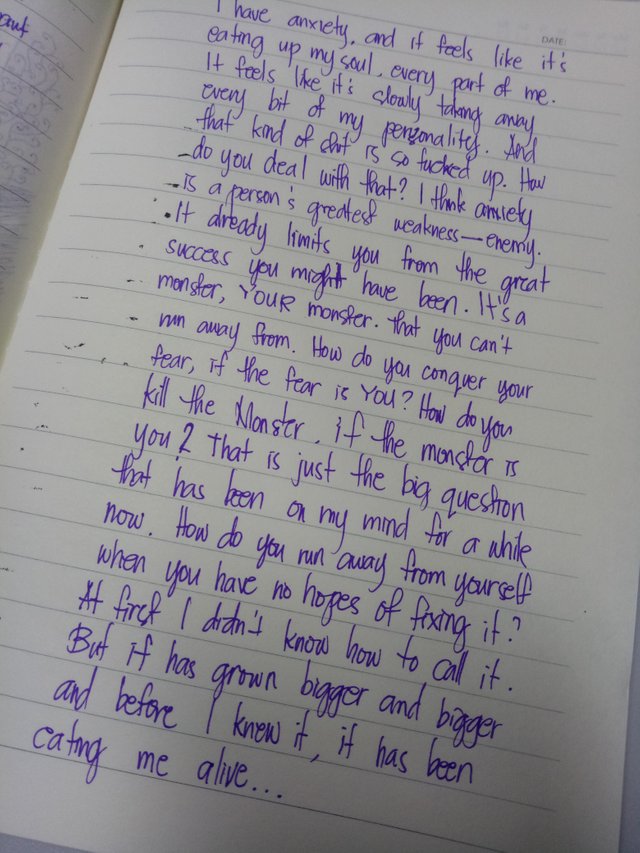 out
DATE:
I have anxiety, and it feels like it's
eating up my soul, every part of me.
It feels like it's slowly taking away
every bit of my personality. And
that kind of shit is so fucked up. How
do you deal with that? I think anxiety
is a person's greatest weakness—enemy.
It already limits you from the great
success you might have been. It's a
monster, YOUR monster. that you can't
run away from. How do you conquer your
fear, if the fear is YOU? How do you
kill the Monster. if the monster is
you? That is just the big question
that has been on my mind for a while
now. How do you run away from yourself
when you have no hopes of fixing it?
At first I didn't know how to call it.
But it has grown bigger and bigger
and before I knew it, it has been
eating me alive...